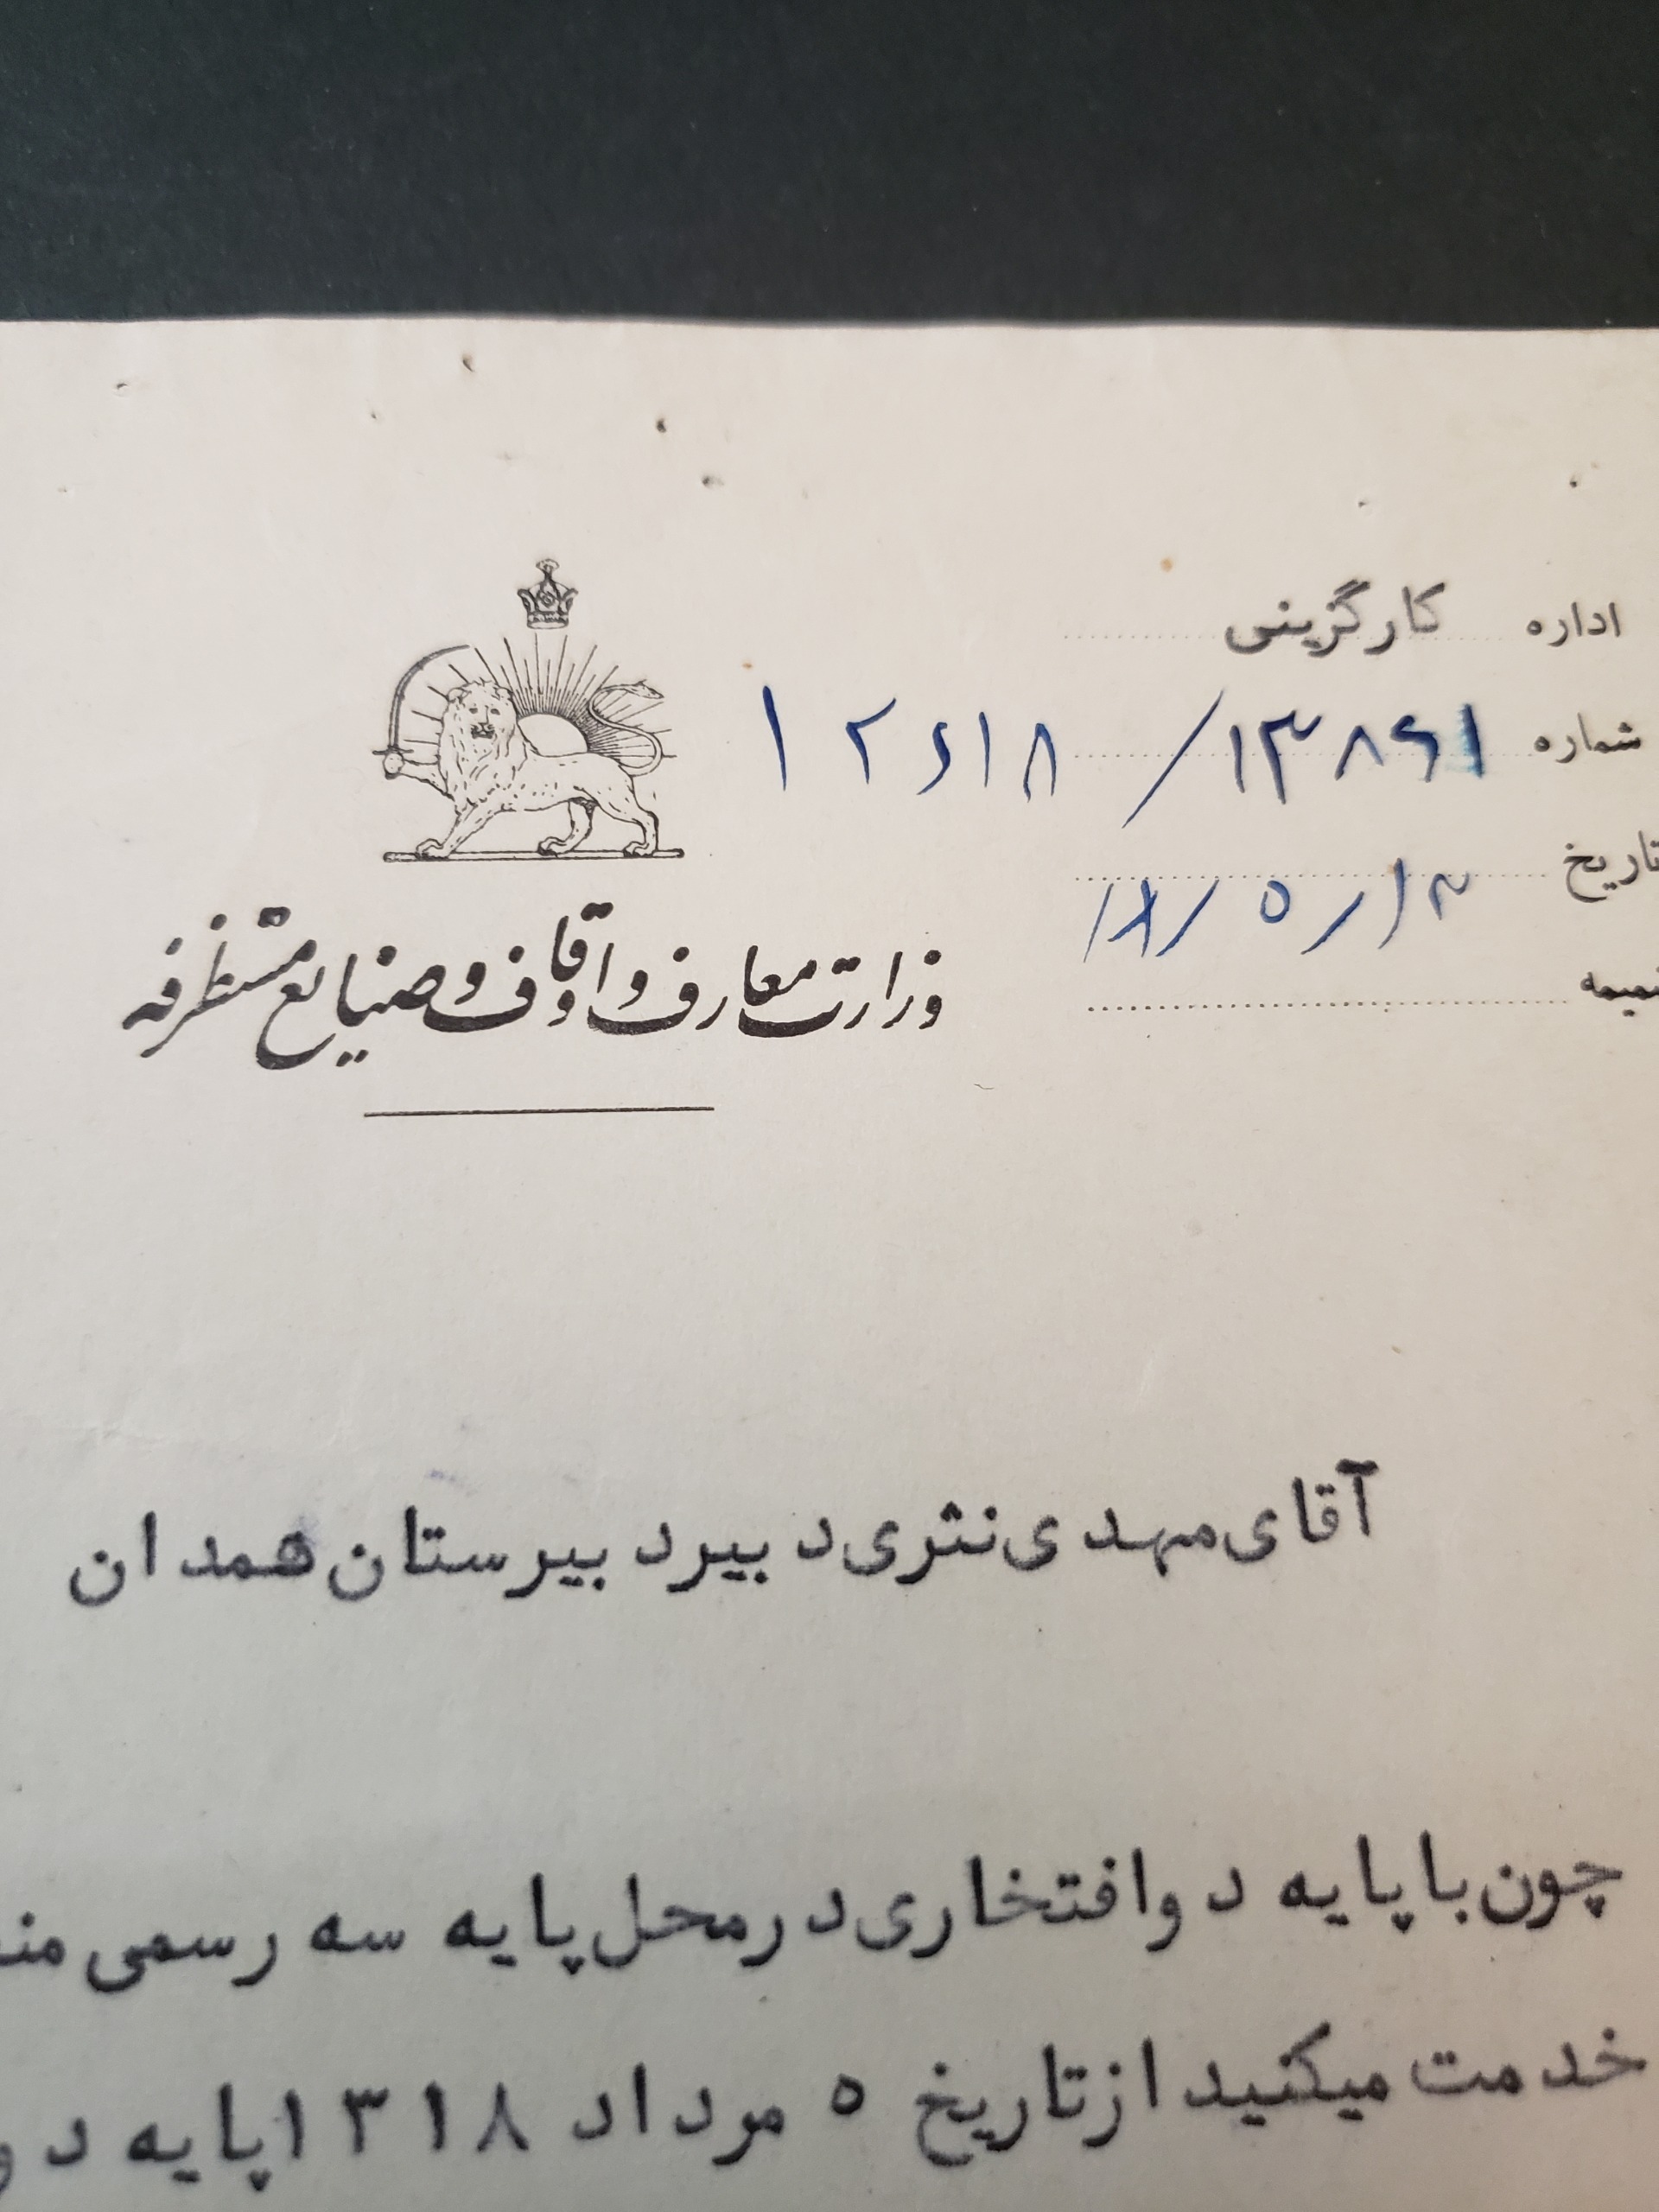 اداره کارگزینی
شماره ۱۲۶۱۸/۱۳۸۶۱
تاریخ ۱۸/۵/۱۳
ضمیمه
وزارت معارف و اوقاف و صنایع مستظرفه
آقای مهدی نثری دبیر دبیرستان همدان
چون با پایه دو افتخاری در محل پایه سه رسمی
خدمت میکنید از تاریخ ۵ مرداد ۱۳۱۸ پایه